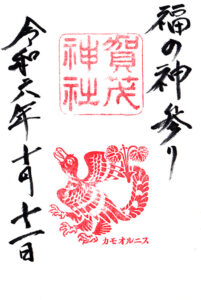 福の神参り
賀茂
神社
カモオルニス
令和六年十月十一日